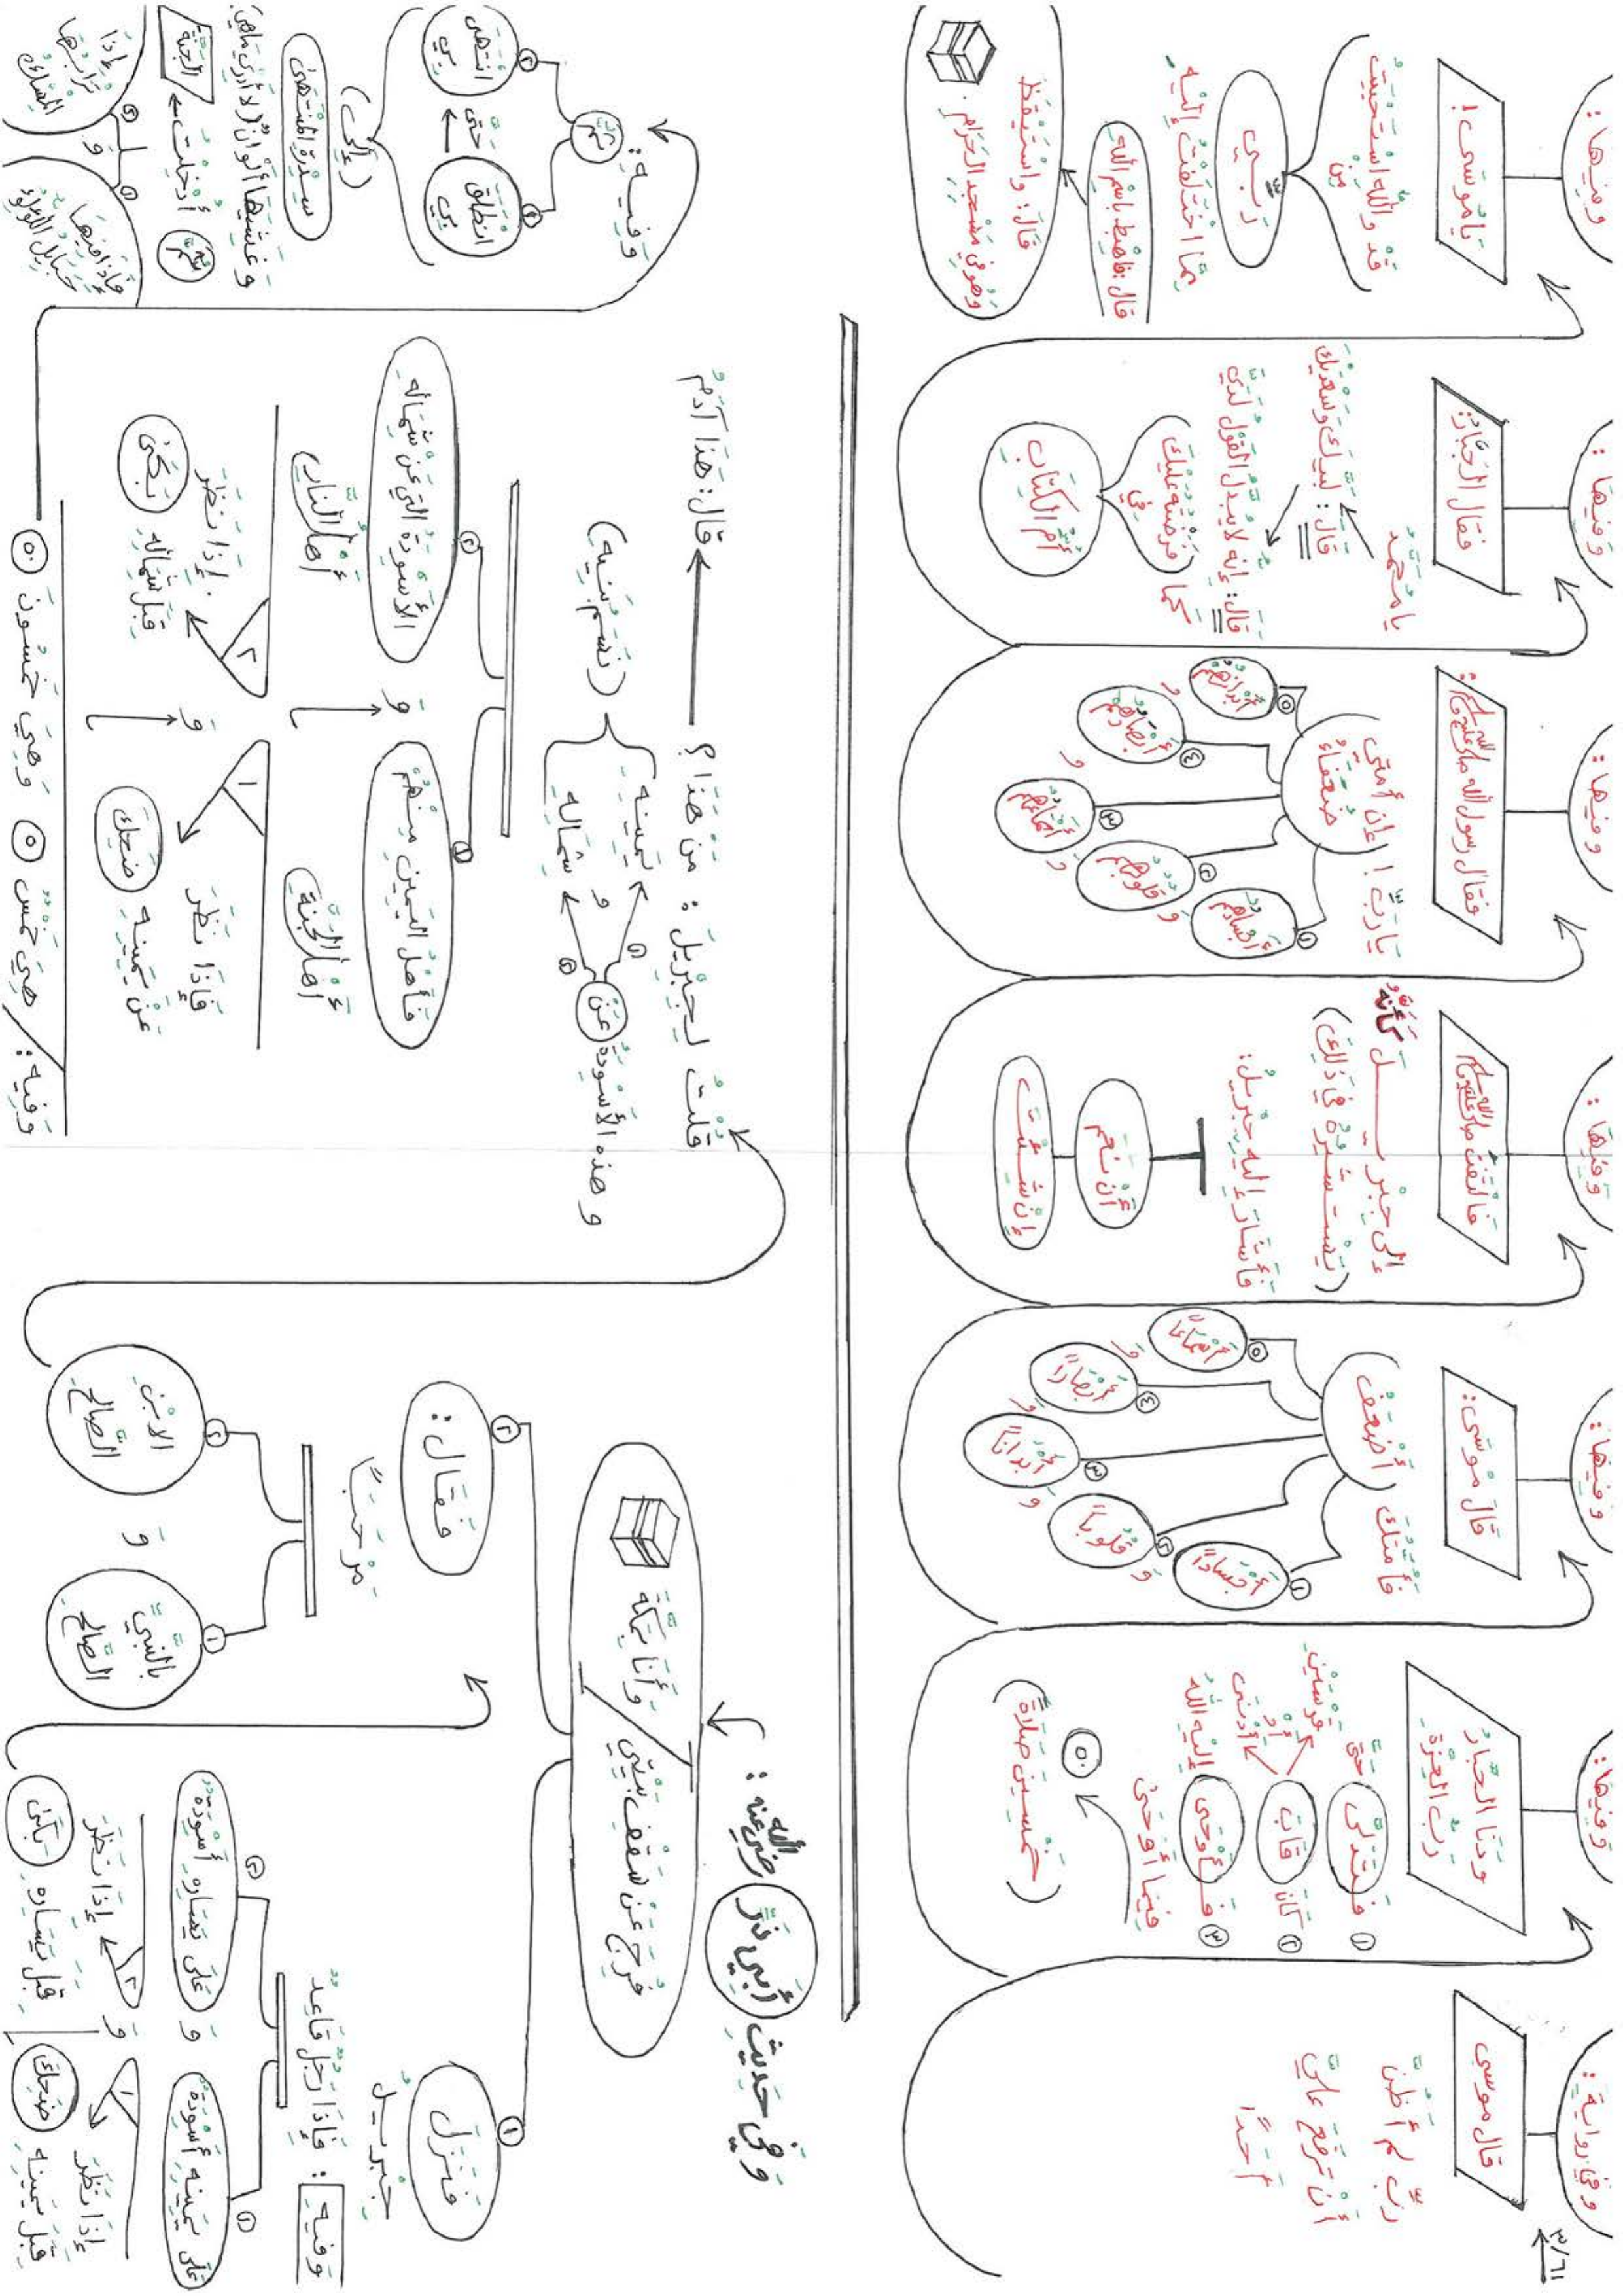 ٣/٦١
وفي رواية:
قال موسى
رَبِّ لَمْ أَظُنَّ
أَنْ تَرْفَعَ عَلَيَّ
أَحَدًا
وَفِيهَا:
وَدَنَا الجَبَّارُ
رَبُّ العِزَّةِ
١ فَتَدَلَّى حَتَّى
٢ كَانَ قَابَ قَوْسَيْنِ
أَوْ أَدْنَى
٣ فَأَوْحَى إِلَيْهِ اللهُ
فِيمَا أَوْحَى
٥٠
(خَمْسِينَ صَلَاةً)
وَفِيهَا:
قَالَ مُوسَى:
فَأُمَّتُكَ أَضْعَفُ
١ أَجْسَادًا
وَ ٢ قُلُوبًا
وَ ٣ أَبْدَانًا
وَ ٤ أَبْصَارًا
وَ ٥ أَسْمَاعًا
وَفِيهَا:
فَالْتَفَتَ صلى الله عليه وسلم
إِلَى جِبْرِيلَ كَأَنَّهُ
(يَسْتَشِيرُهُ فِي ذَلِكَ)
فَأَشَارَ إِلَيْهِ جِبْرِيلُ:
أَنْ نَعَمْ
إِنْ شِئْتَ
وَفِيهَا:
فَقَالَ رسول الله صلى الله عليه وسلم:
يَا رَبِّ! إِنَّ أُمَّتِي
ضُعَفَاءُ
١ أَجْسَادُهُمْ
وَ ٢ قُلُوبُهُمْ
وَ ٣ أَسْمَاعُهُمْ
وَ ٤ أَبْصَارُهُمْ
وَ ٥ أَبْدَانُهُمْ
وَفِيهَا:
فَقَالَ الجَبَّارُ:
يَا مُحَمَّدُ
قَالَ: لَبَّيْكَ وَسَعْدَيْكَ
قَالَ: إِنَّهُ لَا يُبَدَّلُ القَوْلُ لَدَيَّ
كَمَا (فَرَضْتُهُ عَلَيْكَ)
فِي
أُمِّ الكِتَابِ
وَفِيهَا:
يَا مُوسَى!
قَدْ وَاللهِ اسْتَحْيَيْتُ
مِنْ
رَبِّي
مِمَّا اخْتَلَفْتُ إِلَيْهِ
قَالَ: فَاهْبِطْ بِاسْمِ اللهِ
قَالَ: وَاسْتَيْقَظَ
وَهُوَ فِي مَسْجِدِ الحَرَامِ.
وَفِي حَدِيثِ أَبِي ذَرٍّ رَضِيَ اللهُ عَنْهُ:
فُرِجَ عَنْ سَقْفِ بَيْتِي
وَأَنَا بِمَكَّةَ
١ فَنَزَلَ
جِبْرِيلُ
وَفِيهِ: فَإِذَا رَجُلٌ قَاعِدٌ
١ عَلَى يَمِينِهِ أَسْوِدَةٌ
وَ
٢ عَلَى يَسَارِهِ أَسْوِدَةٌ
١ إِذَا نَظَرَ
قِبَلَ يَمِينِهِ ضَحِكَ
وَ
٢ إِذَا نَظَرَ
قِبَلَ يَسَارِهِ بَكَى
٢ فَقَالَ:
مَرْحَبًا
١ بِالنَّبِيِّ
الصَّالِحِ
وَ
٢ الِابْنِ
الصَّالِحِ
قُلْتُ لِجِبْرِيلَ: مَنْ هَذَا؟ قَالَ: هَذَا آدَمُ
وَهَذِهِ الأَسْوِدَةُ عَنْ
١ يَمِينِهِ
وَ
٢ شِمَالِهِ
(نَسَمُ بَنِيهِ)
١ فَأَهْلُ اليَمِينِ مِنْهُمْ
أَهْلُ الجَنَّةِ
وَ
٢ الأَسْوِدَةُ الَّتِي عَنْ شِمَالِهِ
أَهْلُ النَّارِ
١ فَإِذَا نَظَرَ
عَنْ يَمِينِهِ ضَحِكَ
وَ
٢ إِذَا نَظَرَ
قِبَلَ شِمَالِهِ بَكَى
وَفِيهِ: هِيَ خَمْسٌ ٥ وَهِيَ خَمْسُونَ ٥٠
وَفِيهِ:
ثُمَّ
١ انْطَلَقَ
بِي
حَتَّى
٢ انْتَهَى
بِي
(إِلَى)
سِدْرَةِ المُنْتَهَى
وَغَشِيَهَا أَلْوَانٌ (لَا أَدْرِي مَا هِيَ)
ثُمَّ أُدْخِلْتُ الجَنَّةَ
١ فَإِذَا فِيهَا
حَبَايِلُ اللُّؤْلُؤِ
وَ
٢ إِذَا
تُرَابُهَا
المِسْكُ